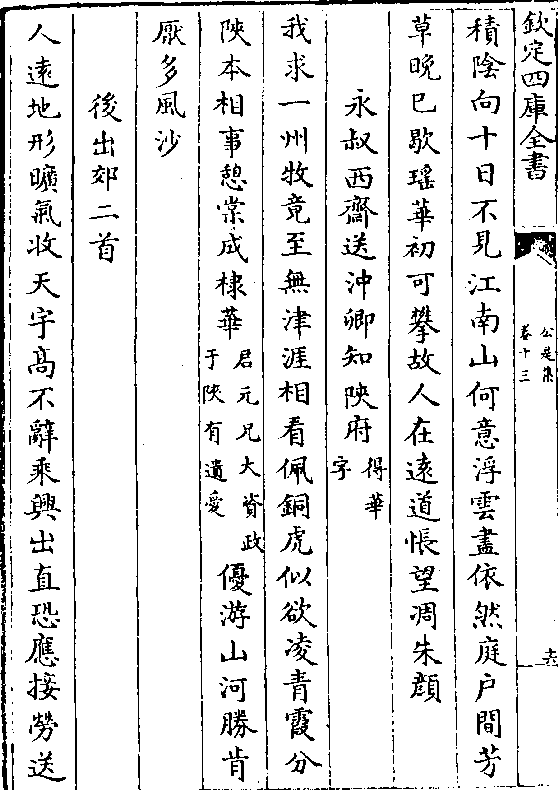 欽定四庫全書
公是集
卷十三
十六
積陰向十日不見江南山何意浮雲盡依然庭戶間芳
草晚已歇瑤華初可攀故人在遠道悵望凋朱顔
永叔西齋送沖卿知陜府得華字
我求一州牧竟至無津涯相看佩銅虎似欲凌青霞分
陜本相事憩棠成棣華君元兄大資政于陜有遺愛優游山河勝肯
厭多風沙
後出郊二首
人遠地形曠氣收天宇高不辭乘興出直恐應接勞送